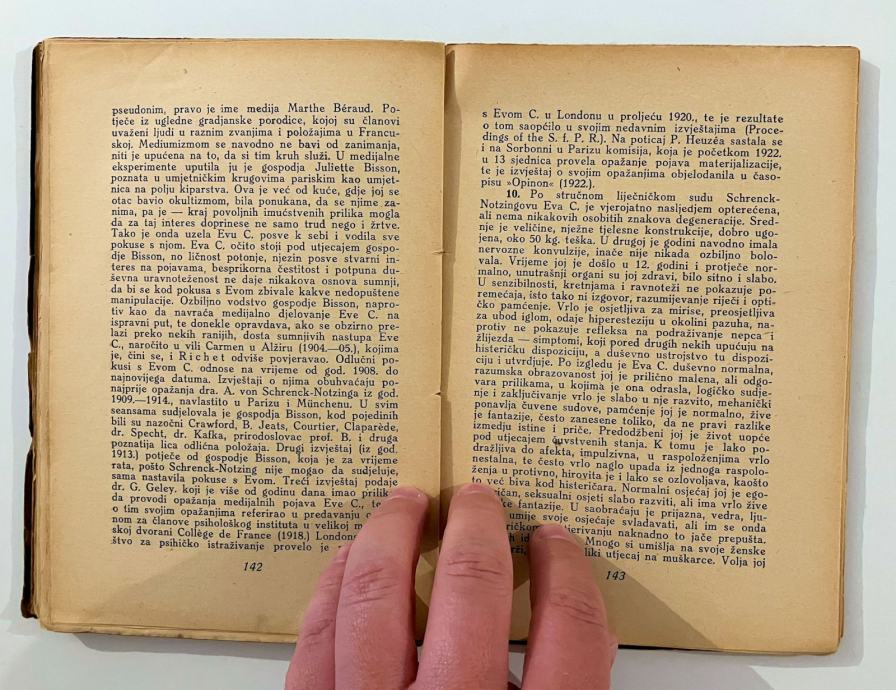 pseudonim, pravo je ime medija Marthe Béraud. Po-
tječe iz ugledne gradjanske porodice, kojoj su članovi
uvaženi ljudi u raznim zvanjima i položajima u Francu-
skoj. Mediumizmom se navodno ne bavi od zanimanja,
niti je upućena na to, da si tim kruh služi. U medijalne
eksperimente uputila ju je gospodja Juliette Bisson,
poznata u umjetničkim krugovima pariskim kao umjet-
nica na polju kiparstva. Ova je već od kuće, gdje joj se
otac bavio okultizmom, bila ponukana, da se njime za-
nima, pa je — kraj povoljnih imućstvenih prilika mogla
da za taj interes doprinese ne samo trud nego i žrtve.
Tako je onda uzela Evu C. posve k sebi i vodila sve
pokuse s njom. Eva C. očito stoji pod utjecajem gospo-
dje Bisson, no ličnost potonje, njezin posve stvarni in-
teres na pojavama, besprikorna čestitost i potpuna du-
ševna uravnoteženost ne daje nikakova osnova sumnji,
da bi se kod pokusa s Evom zbivale kakve nedopuštene
manipulacije. Ozbiljno vodstvo gospodje Bisson, napro-
tiv kao da navraća medijalno djelovanje Eve C. na
ispravni put, te donekle opravdava, ako se obzirno pre-
lazi preko nekih ranijih, dosta sumnjivih nastupa Eve
C., naročito u vili Carmen u Alžiru (1904.—05.), kojima
je, čini se, i Richet odviše povjeravao. Odlučni po-
kusi s Evom C. odnose na vrijeme od god. 1908. do
najnovijega datuma. Izvještaji o njima obuhvaćaju po-
najprije opažanja dra. A. von Schrenck-Notzinga iz god.
1909.—1914., navlastito u Parizu i Münchenu. U svim
seansama sudjelovala je gospodja Bisson, kod pojedinih
bili su nazočni Crawford, B. Jeats, Courtier, Claparède,
dr. Specht, dr. Kafka, prirodoslovac prof. B. i druga
poznatija lica odlična položaja. Drugi izvještaj (iz god.
1913.) potječe od gospodje Bisson, koja je za vrijeme
rata, pošto Schrenck-Notzing nije mogao da sudjeluje,
sama nastavila pokuse s Evom. Treći izvještaj podaje
dr. G. Geley. koji je više od godinu dana imao
da provodi opažanja medijalnih pojava Eve C.,
o tim svojim opažanjima referirao u predavanju
nom za članove psihološkog instituta u velikoj
skoj dvorani Collège de France (1918.)
štvo za psihičko istraživanje provelo je
142
s Evom C. u Londonu u proljeću 1920., te je rezultate
o tom saopćilo u svojim nedavnim izvještajima (Proce-
dings of the S. f. P. R.). Na poticaj P. Heuzéa sastala se
i na Sorbonni u Parizu komisija, koja je početkom 1922.
u 13 sjednica provela opažanje pojava materijalizacije,
te je izvještaj o svojim opažanjima objelodanila u časo-
pisu »Opinon« (1922.).
10. Po stručnom liječničkom sudu Schrenck-
Notzingovu Eva C. je vjerojatno nasljedjem opterećena,
ali nema nikakovih osobitih znakova degeneracije. Sred-
nje je veličine, nježne tjelesne konstrukcije, dobro ugo-
jena, oko 50 kg. teška. U drugoj je godini navodno imala
nervozne konvulzije, inače nije nikada ozbiljno bolo-
vala. Vrijeme joj je došlo u 12. godini i protječe nor-
malno, unutrašnji organi su joj zdravi, bilo sitno i slabo.
U senzibilnosti, kretnjama i ravnoteži ne pokazuje po-
remećaja, isto tako ni izgovor, razumijevanje riječi i opti-
čko pamćenje. Vrlo je osjetljiva za mirise, preosjetljiva
za ubod iglom, odaje hiperesteziju u okolini pazuha, na-
protiv ne pokazuje refleksa na podraživanje nepca i
žlijezda — simptomi, koji pored drugih nekih upućuju na
histeričku dispoziciju, a duševno ustrojstvo tu dispozi-
ciju i utvrdjuje. Po izgledu je Eva C. duševno normalna,
razumska obrazovanost joj je prilično malena, ali odgo-
vara prilikama, u kojima je ona odrasla, logičko sudje-
nje i zaključivanje vrlo je slabo u nje razvito, mehanički
ponavlja čuvene sudove, pamćenje joj je normalno, žive
je fantazije, često zanesene toliko, da ne pravi razlike
izmedju istine i priče. Predodžbeni joj je život uopće
pod utjecajem čuvstvenih stanja. K tomu je lako po-
dražljiva do afekta, impulzivna, u raspoloženjima vrlo
nestalna, te često vrlo naglo upada iz jednoga raspolo-
ženja u protivno, hirovita je i lako se ozlovoljava, kaošto
to već biva kod histeričara. Normalni osjećaj joj je ego-
seksualni osjeti slabo razviti, ali ima vrlo žive
fantazije. U saobraćaju je prijazna, vedra, lju-
umije svoje osjećaje svladavati, ali im se onda
naknadno to jače prepušta.
Mnogo si umišlja na svoje ženske
utjecaj na muškarce. Volja joj
143